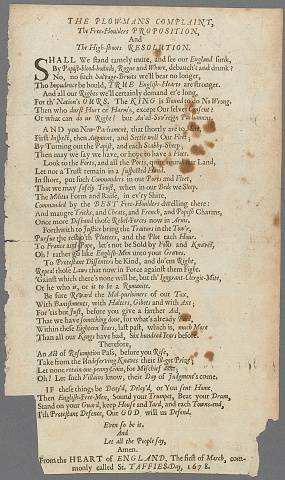 THE PLOW-MANS COMPLAINT,
The Free-Houlders PROPOSITION,
And
The High-shoots RESOLUTION.
SHALL We stand tamely mute, and see our England sink,
By Papist-blood-hounds, Rogue and Whore, debauch't and drunk?
No, no such Salvage-Bruits we'll bear no longer,
Tho Impudence be bould, TRUE English-Hearts are stronger.
And all our Rights we'll certainly demand e're long,
For th' Nation's OURS, The KING is Bound to do No Wrong.
Then who doo's Hurt or Harm's, except Our selves
Or what can do us Right? but An'ad-Sov'raign Parliament.
AND you New-Parliament, that shortly are to
First Inself, then Augment, and Settle well Our
By Turning out the Papist, and each Scabby-Sheep
Then may we say we have, or hope to have a
Look to the Forts, and all the Ports, Land,
Let not a Traitor remain in a suspected
In short, put such Commanders in our Ports and Fleet,
That we may safely Trust, when in our Beds we Sleep.
The Militia Form and Raise, in ev'ry Shire,
Commanded by the BEST Free-Houlders dwelling there:
And maugre Tricks, and Cheats, and French, and Popish Charms,
Once more Disband those Rebel-Forces now in Arms.
Forthwith to Justice bring the Traitors in the Tow'r,
Pursue the rest o'th Plotters, and the Plot each
To France and Pope, let's not be Sold by Fools and Knaves,
Oh! rather go like English-Men unto your Graves.
To Protestant Dissenters be Kind, and do'em Right,
Repeal those Laws that now in Force against them Fight.
Gainst which there's none will be, but th' Ignorant-Clergie-Mite,
Or he who is, or is to be a Romanite.
Be sure Reward the Mis-partioners of our Tax,
With Banishments, with Halters, Gibets and with Ax;
For 'tis but Just, before you give a further Aid,
That we have something done, for what's already
Within these Eighteen Years, last past, which is, much More
Than all our Kings have had, Six hundred Years before.
Therefore,
An Act of Resumption Pass, before you Rise,
Take from the Undeserving Knaves their Ill-got Prize;
Let none retain one penny Coin, for Mischief
Oh! Let such Villains know, their Day of Judgment's come.
IF these things be Deny'd, Delay'd, or You sent Home,
Then English-Free-Men, Sound your Trumpet, Beat your Drum,
Stand on your Guard, keep House and Yard, and each Towns-end,
I'th Protestant Defence, Our GOD will us Defend.
Even so be it,
And
Let all the People say,
Amen.
From the HEART of ENGLAND, The first of March, com-
monly called St. TAFFIES-Day, 1678.